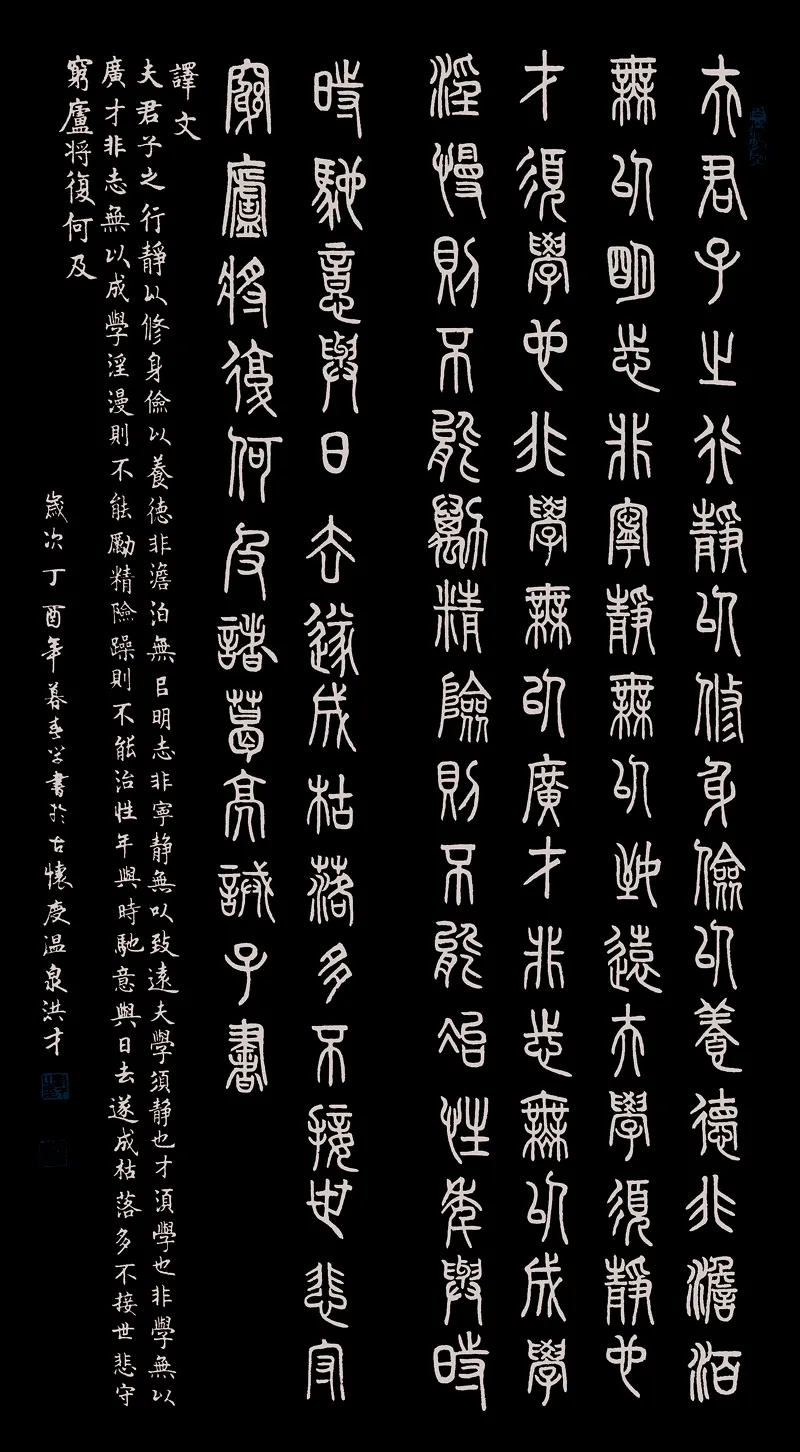 夫君子之行靜以修身儉以養德非澹泊
無以明志非寧靜無以致遠夫學須靜也
才須學也非學無以廣才非志無以成學
淫慢則不能勵精險則不能冶性年與時
時馳意與日去遂成枯落多不接世悲守
窮廬將復何及諸葛亮誡子書
譯文
夫君子之行靜以修身儉以養德非澹泊無㠯明志非寧静無以致遠夫學須静也才須學也非學無以
廣才非志無以成學淫漫則不能勵精險躁則不能治性年與時馳意與日去遂成枯落多不接世悲守
窮廬將復何及
歲次丁酉年暮春学書於古懷慶温泉洪才